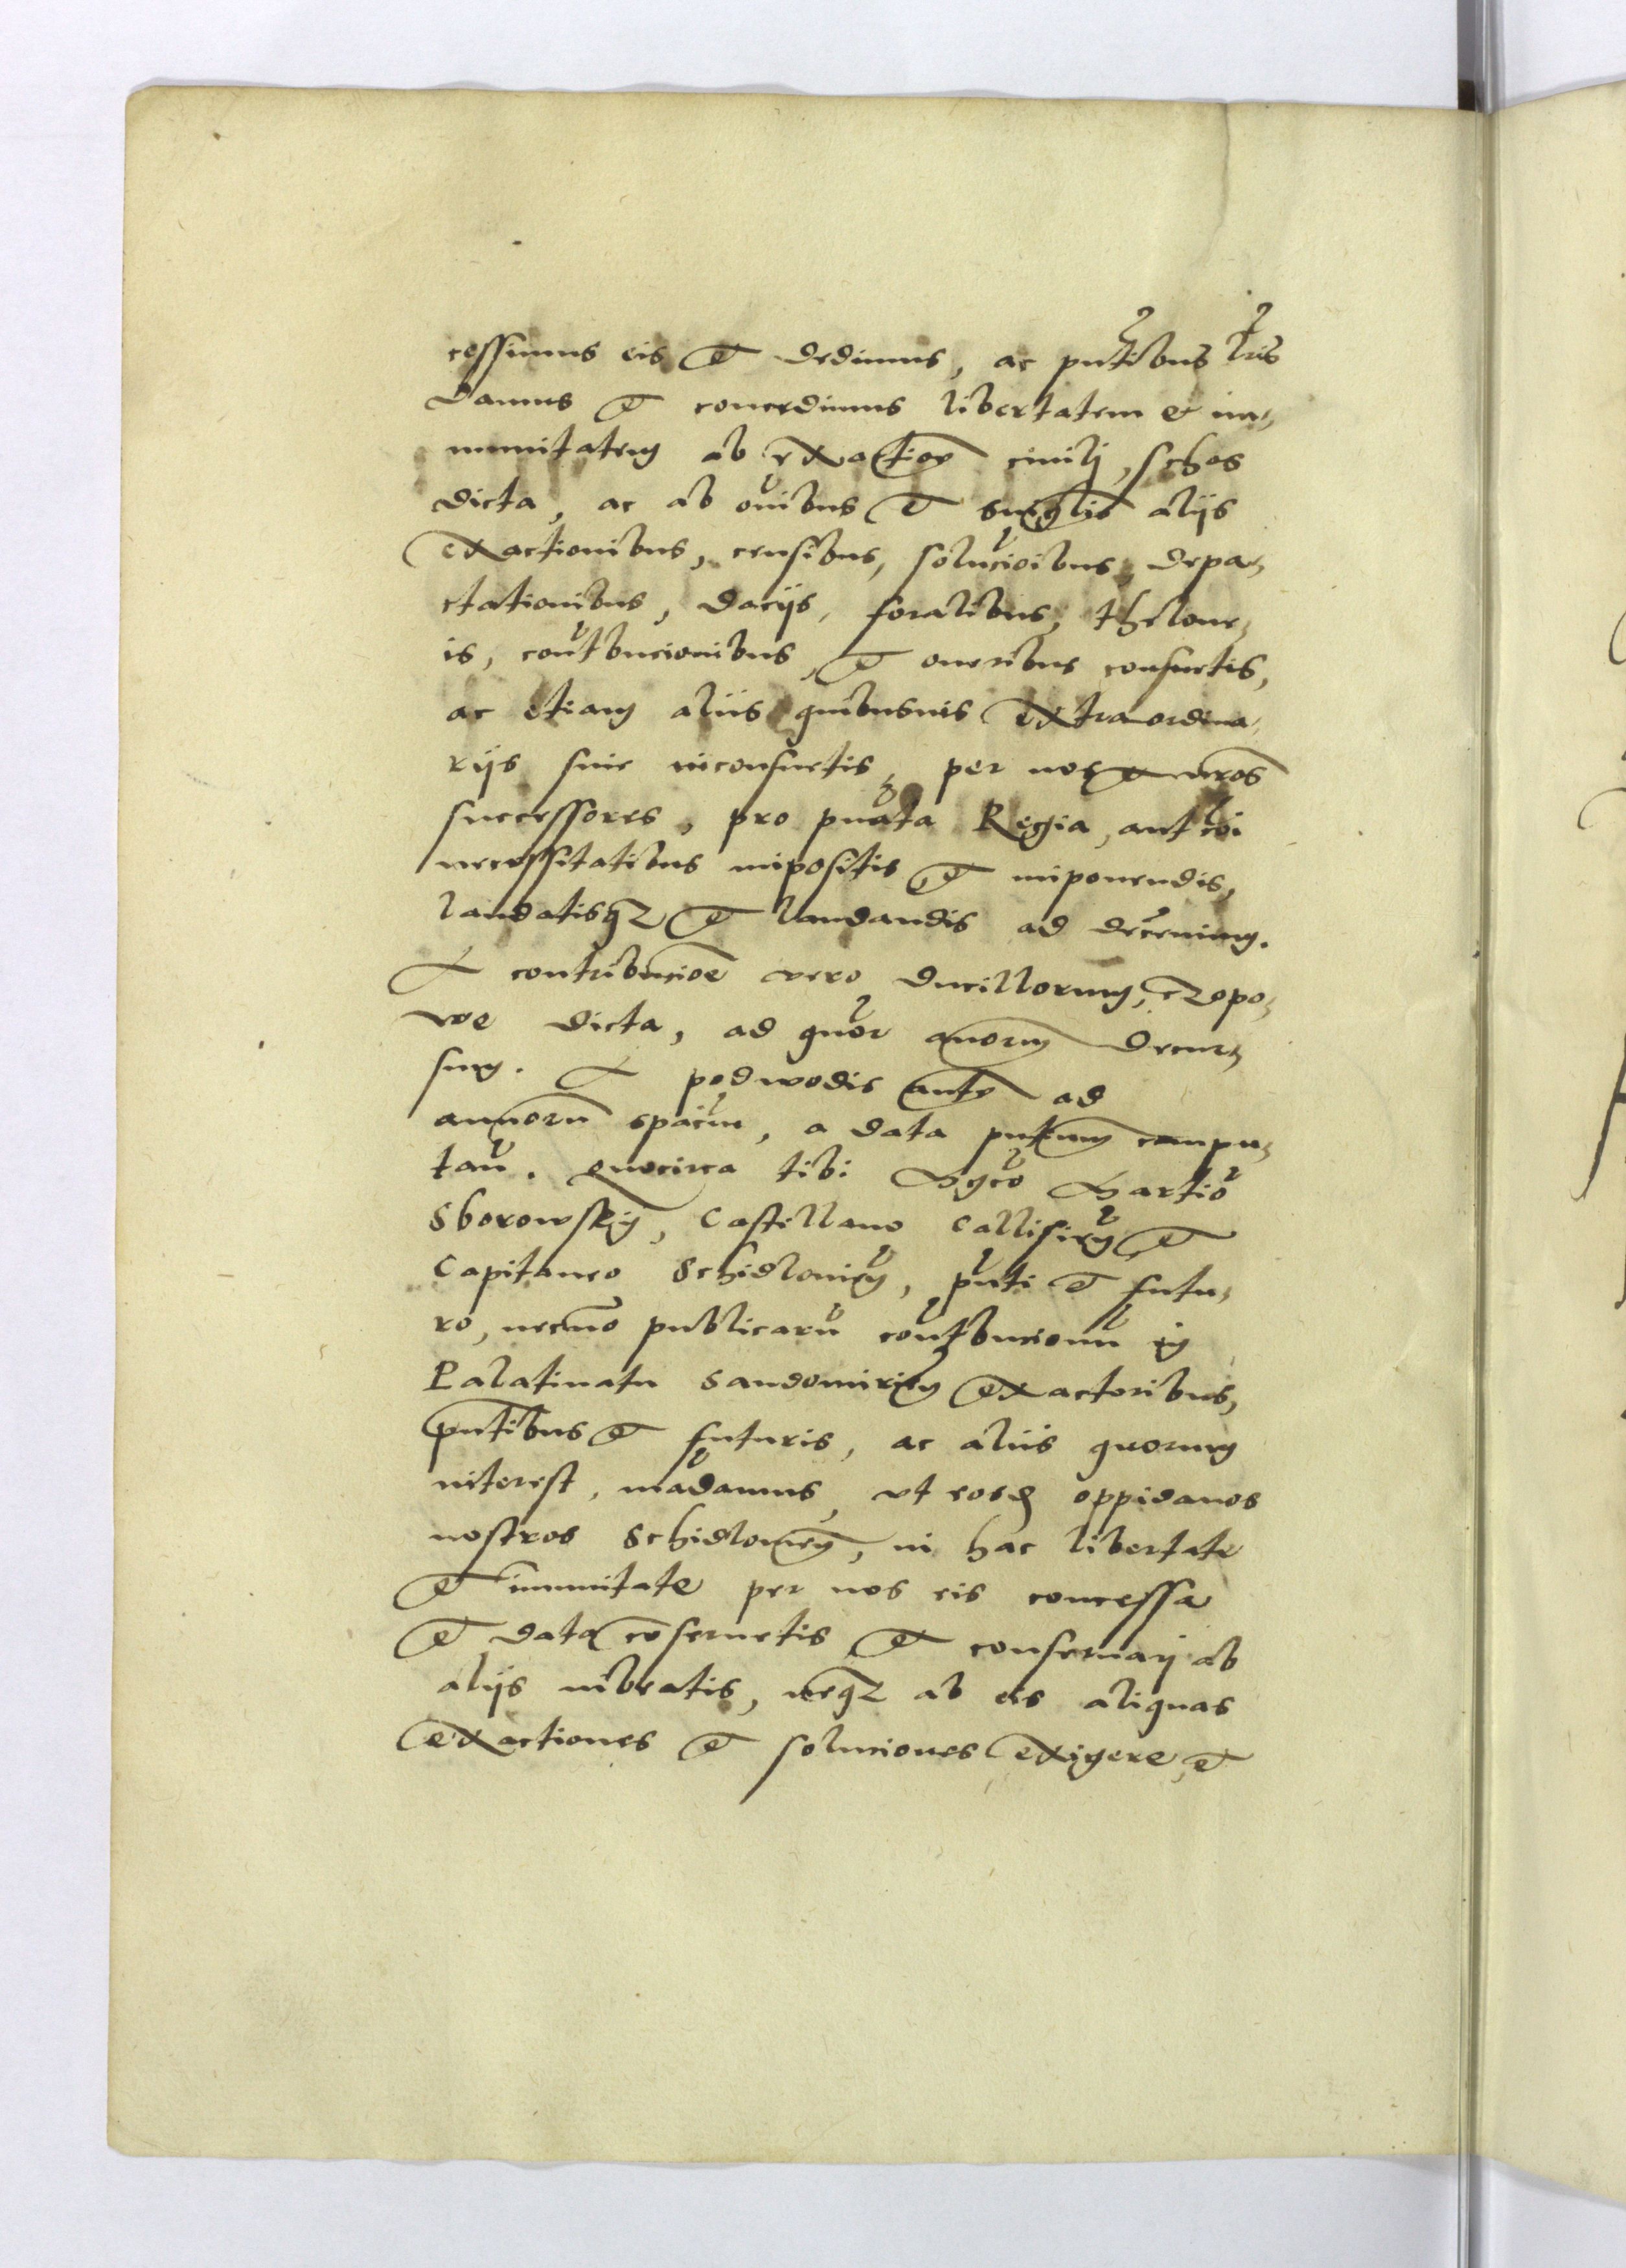 cessimus eis et dedimus, ac pn̄tibus lris
damus et concedimus libertatem & im„
munitatem ab exactioe ciuili, schos
dicta, ac ab oībus et singlis alijs
exactionibus, censibus, solucioibus, depa„
ctationibus, dacijs, foralibus, thelone„
is, contbucionibus, et oneribus consuetis,
ac etiam aliis quibusuis extraordina„
rijs siue inconsuetis, per nos et nros
successores, pro priuata Regia, aut coi
necessitatibus impositis et imponendis,
laudatisqz et laudandis ad decenium.
A contribucioe vero ducillorum, czopo„
we dicta, ad quor annorum decur„
sum. A podwodis aute ad
annorū spaciū, a data pntium compu„
tan. Quocirca tibi Mgco Martio
Sborowskij, Castellano Callisien et
Capitaneo Schidlouien, pn̄ti et futu„
ro, necno publicarū contbucionū in
Palatinatu Sandomirien exactoribus,
pntibus et futuris, ac aliis quorum
interest, mādamus, vt eosd oppidanos
nostros Schidlouien, in hac libertate
et immunitate per nos eis concessa
et data cōseruetis et conseruari ab
alijs iubeatis, neqz ab eis aliquas
exactiones et soluciones exigere, et